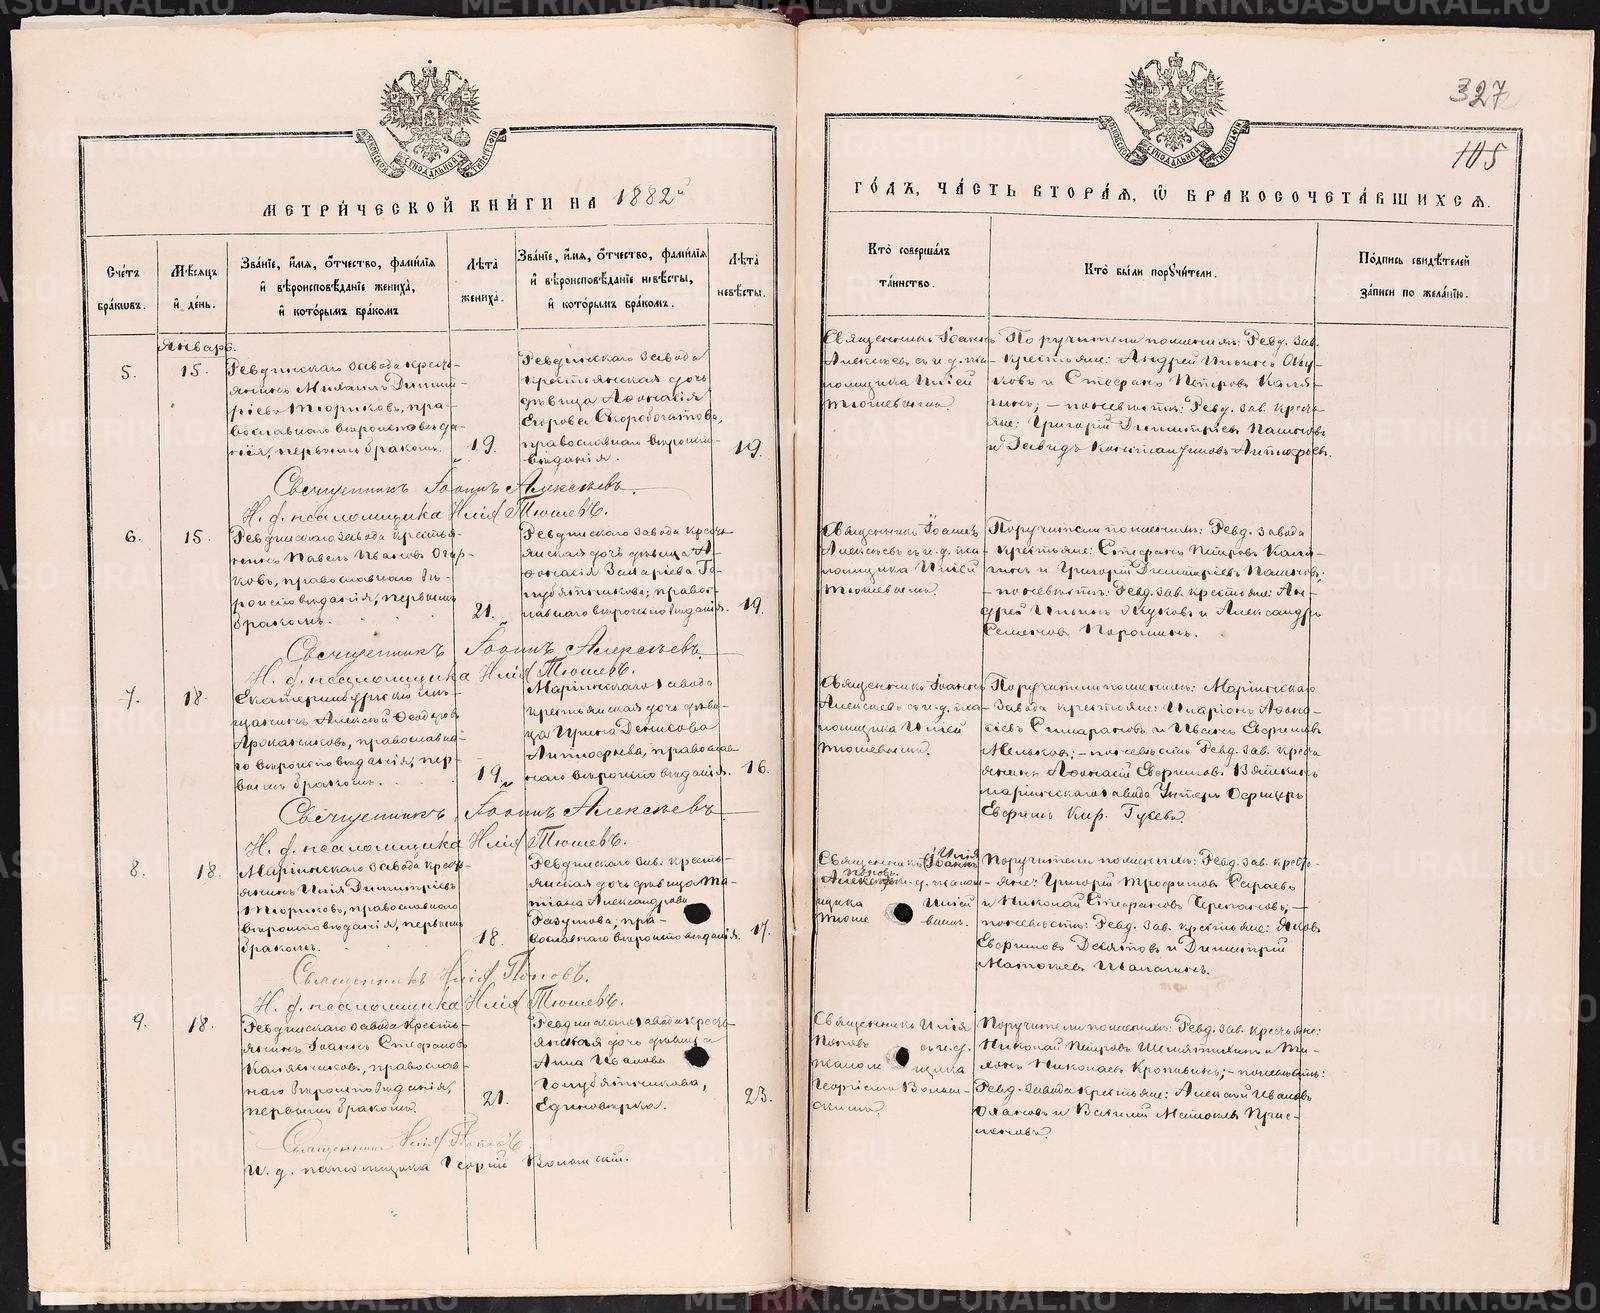 327
105
МЕТРИ́ЧЕСКОЙ КНИ́ГИ НА 1882й
ГО́ДЪ, ЧА́СТЬ ВТОРА́Я, Ѡ БРАКОСОЧЕТА́ВШИХСЯ.
Сче́тъ бра́кѡвъ.
Мѣ́сяцъ и҆ де́нь.
Зва́нїе, и҆́мѧ, ѻ҆́тчество, фами́лїѧ
и҆ вѣроисповѣ́данїе жениха̀,
и҆ кото́рымъ бра́комъ
Лѣ́та жениха̀.
Зва́нїе, и҆́мѧ, ѻ҆́тчество, фами́лїѧ
и҆ вѣроисповѣ́данїе невѣ́сты,
и҆ кото́рымъ бра́комъ.
Лѣ́та невѣ́сты.
Кто̀ соверша́лъ
та́инство.
Кто̀ бы́ли порꙋчи́тели.
По́дпись свидѣ́телей
за́писи по жела́нїю.
Январь.
5.
15.
Ревдинскаго завода кресть-
янинъ Михаилъ Димит-
ріевъ Тюриковъ, пра-
вославнаго вѣроисповѣда-
нія, первымъ бракомъ.
19.
Ревдинскаго завода
крестьянская дочь
дѣвица Афанасія
Егорова Скоробогатова,
православнаго вѣроиспо-
вѣданія.
19.
Священникъ Іоаннъ
Алексѣевъ съ и. д. пса-
ломщика Иліей
Тюшевымъ.
Поручители по женихѣ: Ревд. зав.
крестьяне: Андрей Ильинъ
и Стефанъ Петровъ Каля-
гинъ; - по невѣстѣ: Ревд. зав. кресть-
яне: Григорій Димитріевъ Пашковъ
и Давидъ Константиновъ
Священникъ Іоаннъ Алексѣевъ.
И. д. псаломщика Илія Тюшевъ.
6.
15.
Ревдинскаго завода крестья-
нинъ Павелъ Ивановъ
православнаго вѣ-
роисповѣданія, первымъ
бракомъ.
21.
Ревдинскаго завода кресть-
янская дочь дѣвица А-
фанасія Захаріева Го-
лубятникова; право-
славнаго вѣроисповѣданія.
19.
Священникъ Іоаннъ
Алексѣевъ съ и. д. пса-
ломщика Иліей
Тюшевымъ.
Поручители по женихѣ: Ревд. завода
крестьяне: Стефанъ Петровъ Каля-
гинъ и Григорій Димитріевъ Пашковъ;
- по невѣстѣ: Ревд. зав. крестьяне: Ан-
дрей Ильинъ и Александръ
Семеновъ Парошинъ.
Священникъ Іоаннъ Алексѣевъ.
И. д. псаломщика Илія Тюшевъ.
7.
18.
Екатеринбургскій мѣ-
щанинъ Алексѣй Феодоровъ
православна-
го вѣроисповѣданія, пер-
вымъ бракомъ.
19.
Маріинскаго завода
крестьянская дочь дѣви-
ца Ирина Денисова
православ-
наго вѣроисповѣданія.
16.
Священникъ Іоаннъ
Алексѣевъ съ и. д. пса-
ломщика Иліей
Тюшевымъ.
Поручители по женихѣ: Маріинскаго
завода крестьяне: Иларіонъ Афана-
сіевъ и Иванъ Ефремовъ
Мельковъ; - по невѣстѣ: Ревд. зав. кресть-
янинъ Афанасій Ефремовъ Вяткинъ
Маріинскаго завода Унтеръ Офицеръ
Ефремъ Кир. Гусевъ.
Священникъ Іоаннъ Алексѣевъ
И. д. псаломщика Илія Тюшевъ.
8.
18
Маріинскаго завода кресть-
янинъ Илія Димитріевъ
Тюриковъ, православнаго
вѣроисповѣданія, первымъ
бракомъ.
18.
Ревдинскаго зав. кресть-
янская дочь дѣвица Та-
тіана Александрова
пра-
вославнаго вѣроисповѣданія.
17.
Священникъ Илія
Поповъ
и. д. псалом-
щика Иліей
Тюшевымъ.
Поручители по женихѣ: Ревд. зав. кресть-
яне: Григорій Трофимовъ
и Николай Стефановъ Черепановъ; -
по невѣстѣ: Ревд. зав. крестьяне: Яковъ
Ефремовъ Десятовъ и Димитрій
Шалагинъ.
Священникъ Илія Поповъ.
И. д. псаломщика Илія Тюшевъ.
9.
18.
Ревдинскаго завода кресть-
янинъ Іоаннъ Стефановъ
православ-
наго вѣроисповѣданія,
первымъ бракомъ.
21.
Ревдинскаго завода кресть-
янская дочь дѣвица
Анна Иванова
Голубятникова,
Единовѣрка.
23.
Священникъ Илія
Поповъ съ и. д.
псаломщика
Георгіемъ Волын-
скимъ.
Поручители по женихѣ: Ревд. зав. крестьяне:
Николай Петровъ и Ти-
хонъ Николаевъ - по невѣстѣ:
Ревд. завода крестьяне: Алексѣй Ивановъ
и Василій
Священникъ Илія Поповъ
И. д. псаломщика Георгій Волынскій.
METRIKI.GASO-URAL.RU